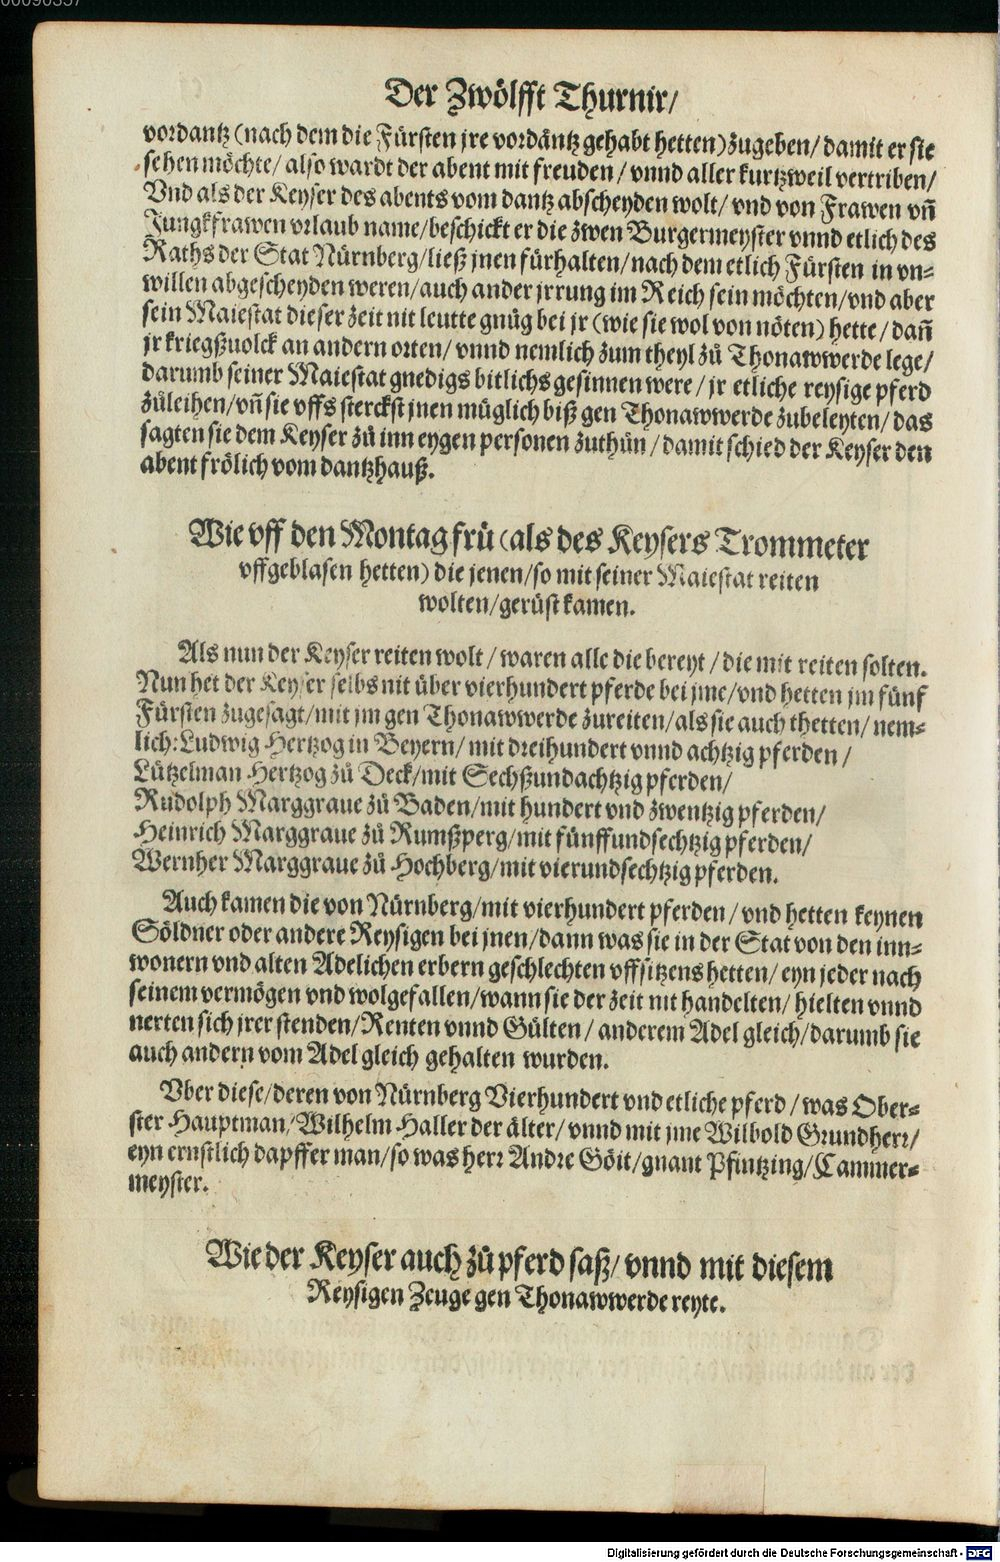 00090357
Der Zwölfft Thurnir/
vordantz (nach dem die Fürsten jre vordäntz gehabt hetten) zugeben/ damit er sie
sehen möchte/ also wardt der abent mit freuden/ vnnd aller kurtzweil vertriben/
Vnd als der Keyser des abents vom dantz abscheyden wolt/ vnd von Frawen vñ
Jungkfrawen vrlaub name/ beschickt er die zwen Burgermeyster vnnd etlich des
Raths der Stat Nürnberg/ ließ jnen fürhalten/ nach dem etlich Fürsten in vn⸗
willen abgescheyden weren/ auch ander jrrung im Reich sein möchten/ vnd aber
sein Maiestat dieser zeit nit leutte gnůg bei jr (wie sie wol von nöten) hette/ dañ
jr kriegßuolck an andern orten/ vnnd nemlich zum theyl zů Thonawwerde lege/
darumb seiner Maiestat gnedigs bitlichs gesinnen were/ jr etliche reysige pferd
zůleihen/ vñ sie vffs sterckst jnen müglich biß gen Thonawwerde zubeleyten/ das
sagten sie dem Keyser zů inn eygen personen zuthůn/ damit schied der Keyser den
abent frölich vom dantzhauß.
Wie vff den Montag frü (als des Keysers Trommeter
vffgeblasen hetten) die jenen/ so mit seiner Maiestat reiten
wolten/ gerüst kamen.
Als nun der Keyser reiten wolt/ waren alle die bereyt/ die mit reiten solten.
Nun het der Keyser selbs nit über vierhundert pferde bei jme/ vnd hetten jm fünf
Fürsten zugesagt/ mit jm gen Thonawwerde zureiten/ als sie auch thetten/ nem⸗
lich: Ludwig Hertzog in Beyern/ mit dreihundert vnnd achtzig pferden/
Lützelman Hertzog zů Deck/ mit Sechßundachtzig pferden/
Rudolph Marggraue zů Baden/ mit hundert vnd zwentzig pferden/
Heinrich Marggraue zů Rumßperg/ mit fünffundsechtzig pferden/
Wernher Marggraue zů Hochberg/ mit vierundsechtzig pferden.
Auch kamen die von Nürnberg/ mit vierhundert pferden/ vnd hetten keynen
Söldner oder andere Reysigen bei jnen/ dann was sie in der Stat von den inn⸗
wonern vnd alten Adelichen erbern geschlechten vffsitzens hetten/ eyn jeder nach
seinem vermögen vnd wolgefallen/ wann sie der zeit nit handelten/ hielten vnnd
nerten sich jrer stenden/ Renten vnnd Gülten/ anderem Adel gleich/ darumb sie
auch andern vom Adel gleich gehalten wurden.
Vber diese/ deren von Nürnberg Vierhundert vnd etliche pferd/ was Ober⸗
ster Hauptman/ Wilhelm Haller der älter/ vnnd mit jme Wilbold Grundherr/
eyn ernstlich dapffer man/ so was herr Andre Göit/ gnant Pfintzing/ Cammer⸗
meyster.
Wie der Keyser auch zů pferd saß/ vnnd mit diesem
Reysigen Zeuge gen Thonawwerde reyte.
Digitalisierung gefördert durch die Deutsche Forschungsgemeinschaft - DFG